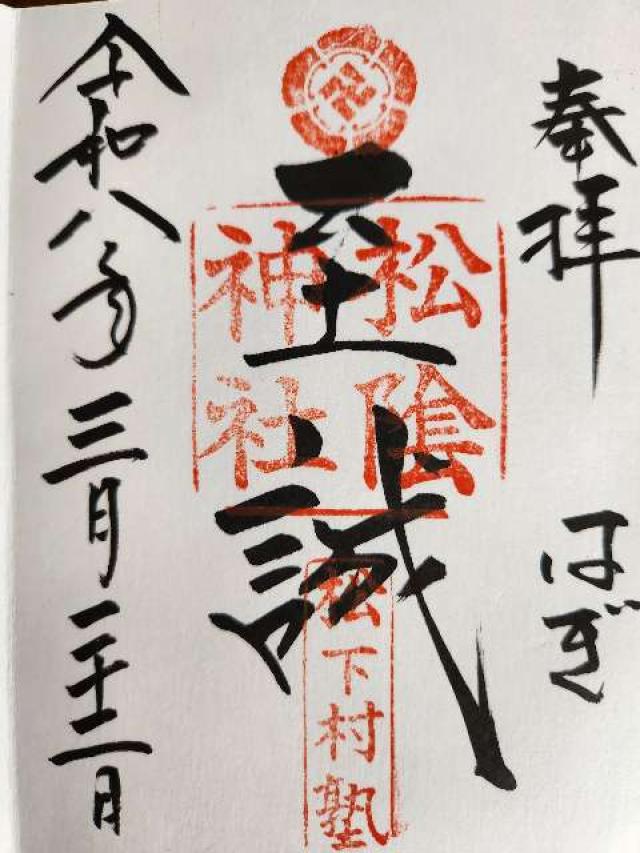 奉拝
はぎ
至誠
松陰
神社
松下村塾
令和八年三月二十二日